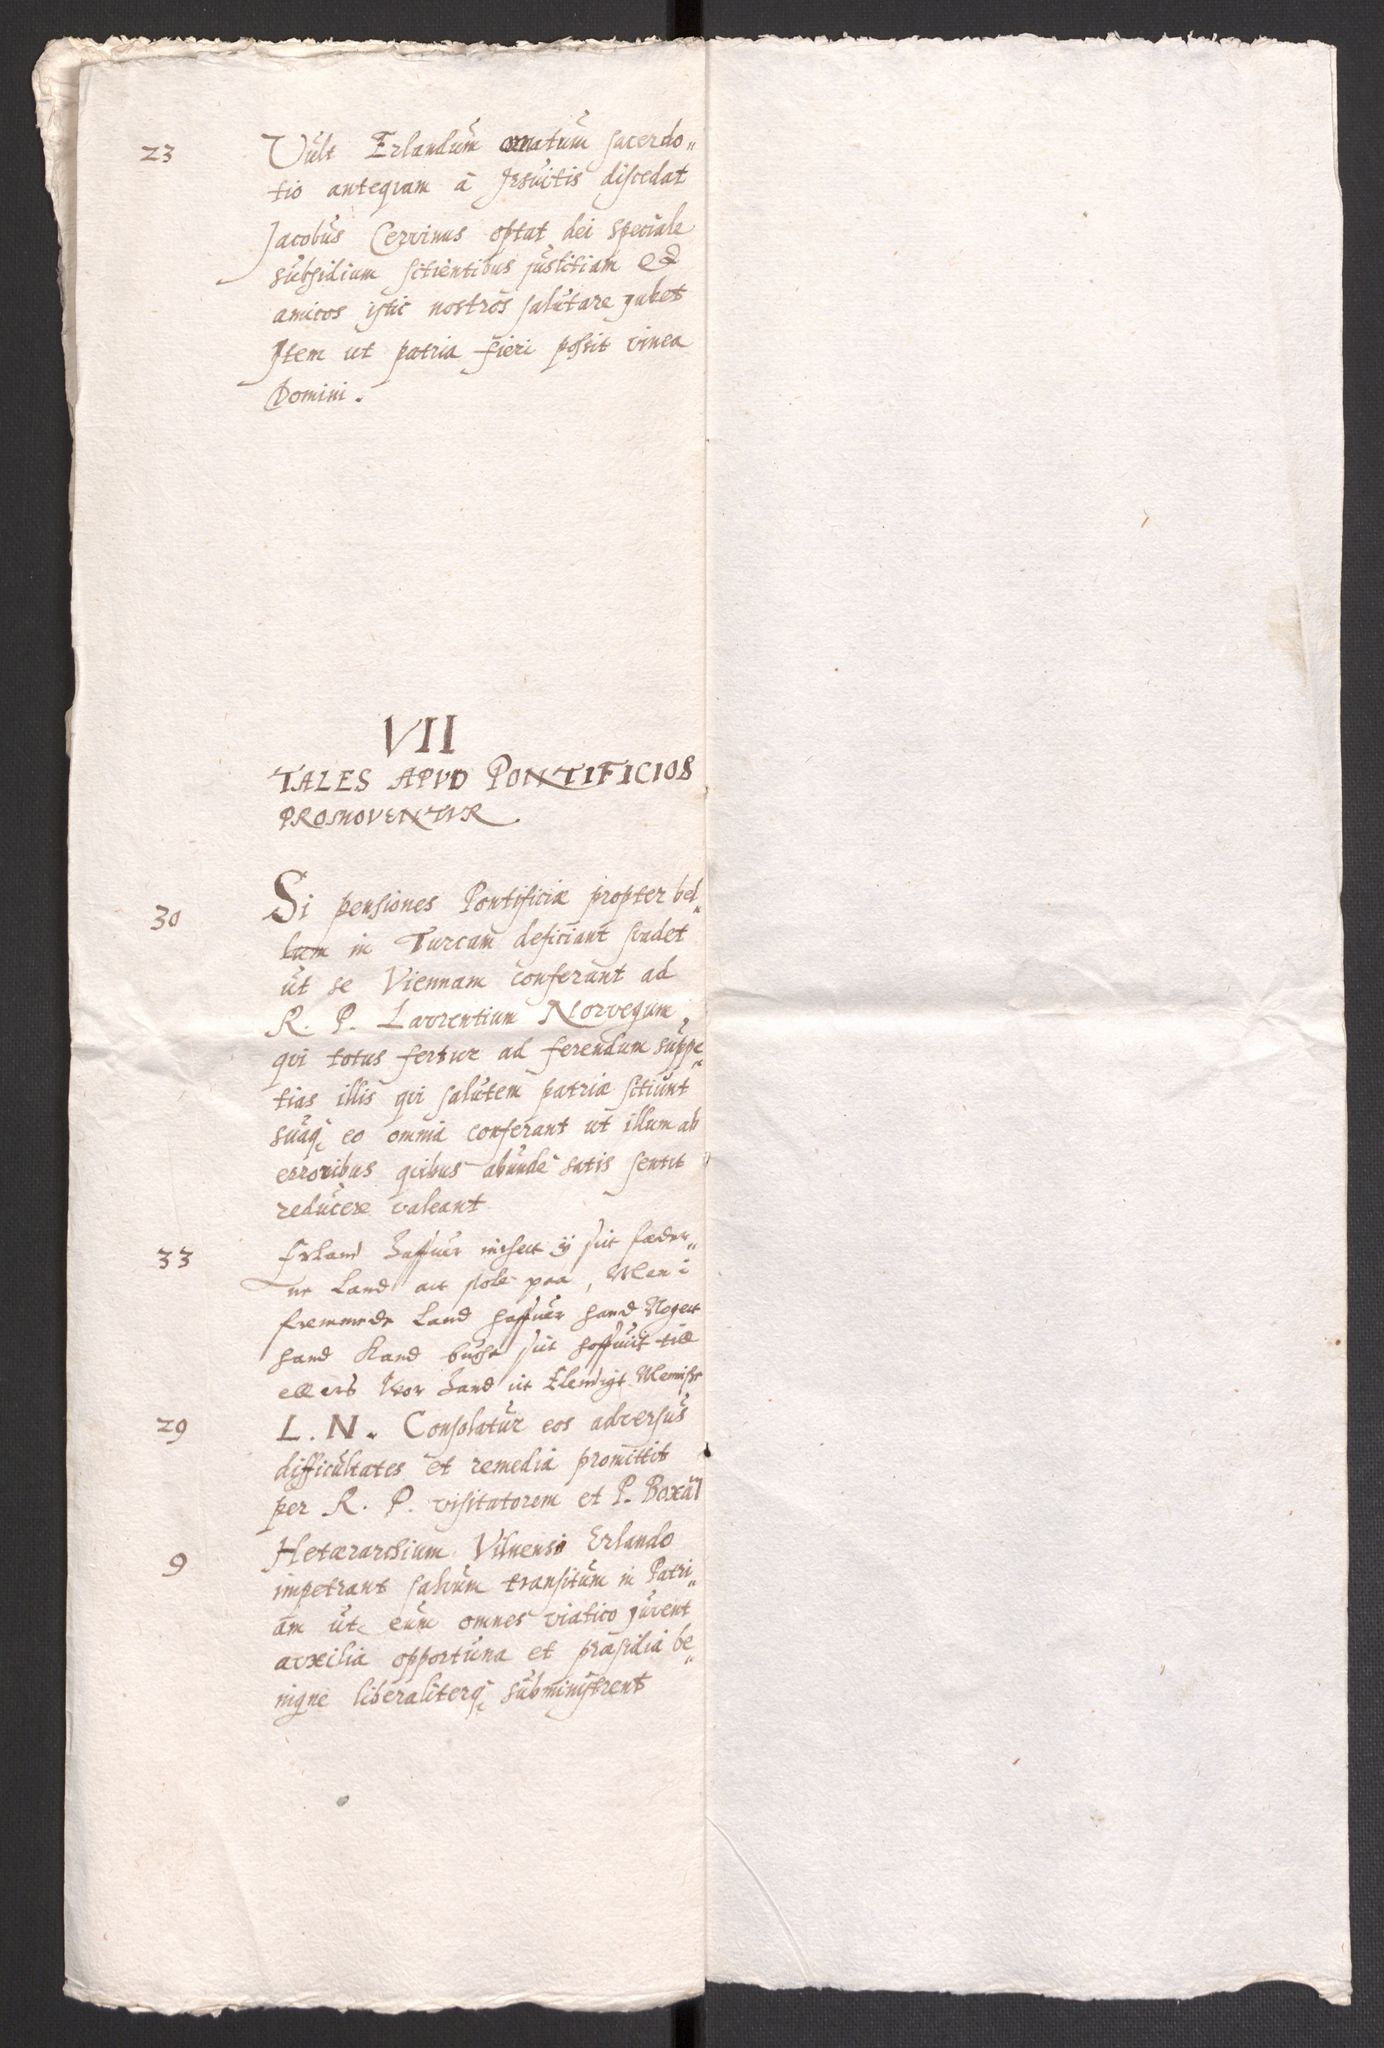 23 Vult Erlandum ornatum sacerdo„
tio anteqvam à Jesuitis discedat
Jacobus Cervinus optat dei speciale
subsidium sitientibus justitiam &
amicos istic nostros salutare jubet
Item ut patria fieri possit vinea
Domini.
VII
TALES APVD PONTIFICIOS
PROMOVENTVR
30 Si pensiones Pontificiæ propter bel„
lum in Turcam deficiant svadet
ut se Viennam conferant ad
R. P. Lavrentium Norvegum,
qvi totus fertur ad ferendum suppe„
tias illis qvi salutem patriæ sitiunt
suaq; eo omnia conferant ut illum ab
erroribus qvibus abunde satis sentit
reducere valeant
33 Erland haffuer inthett ÿ sitt fæder„
ne Land att stole paa, Men i
fremmede Land haffuer hand Nogett
hand kand sitt hoffuit till
ellers hand it Elendigt Menniske
29 L. N. Consolatur eos adversus
difficultates et remedia promittit
per R. P. visitatorem et P. Boxal
9 Hetærarchium Vilnensi Erlando
impetrant salvum transitum in Patri„
am ut eum omnes viatico juvent
avxilia opportuna et præsidia be„
nigne liberaliterq; subministrent